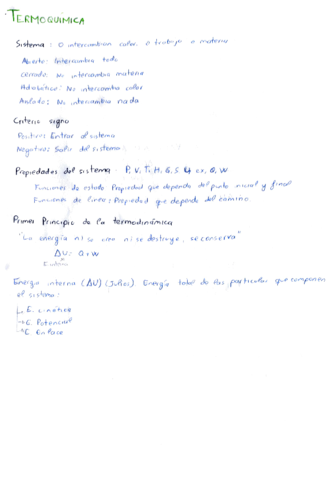 TERMOQUIMICA
Sistema: O intercambian calor o trabajo o materia
Abierto: Intercambia todo
Cerrado: No intercambia materia
Adiabático: No intercambia calor
Aislado: No intercambia nada
Criterio signo
Positivo: Entrar al sistema
Negativo: Salir del sistema
Propiedades del sistema P, V, T, H, G, S Q, W
Funciones de estado Propiedad que depende del punto inicial y final
Funciones de linea: Propiedad que depende del camino
Primer Principio de la termodinámica
"La energía ni se crea ni se destruye, se conserva"
ΔU: Q+W
Energía interna (ΔU) (Julios). Energía total de las partículas que componen
el sistema:
E. cinética
E. Potencial
E. Enlace